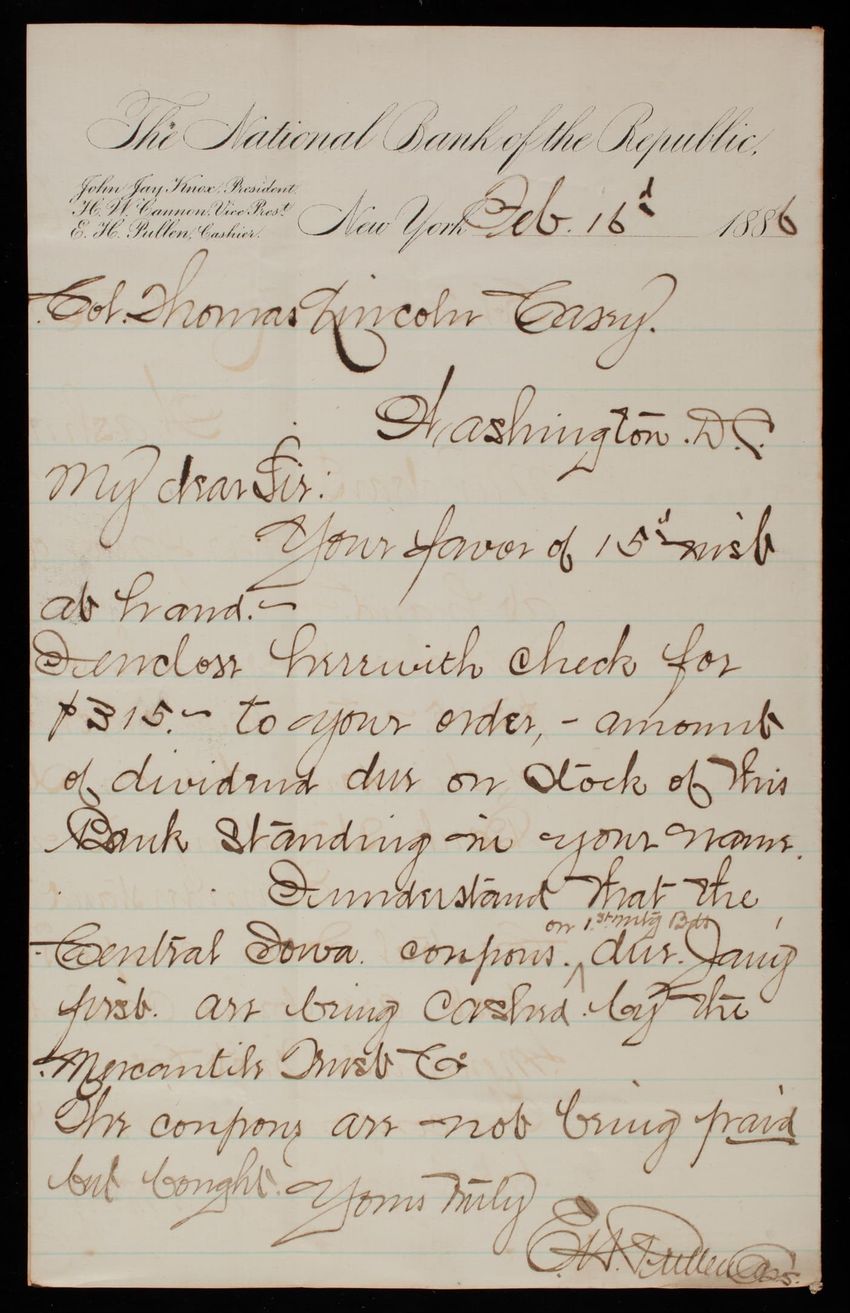 The National Bank of the Republic.
John Jay Knox, President.
H. W. Cannon, Vice Prest.
E. H. Pullen, Cashier.
New York Feb. 16d 1886
Col. Thomas Lincoln Casey.
Washington. D.C.
My dear Sir:
Your favor of 15d inst
at hand.-
I enclose herewith check for
$315.- to your order, - amount
of dividend due on stock of this
Bank standing in your name.
I understand that the
on 1st mtg Bds
Central Iowa coupons. ^ due. Jan'y
first. are being cashed by the
Mercantile Trust Co
The coupons are not being paid
but bought.
Yours truly
E.H. Pullen Cas.